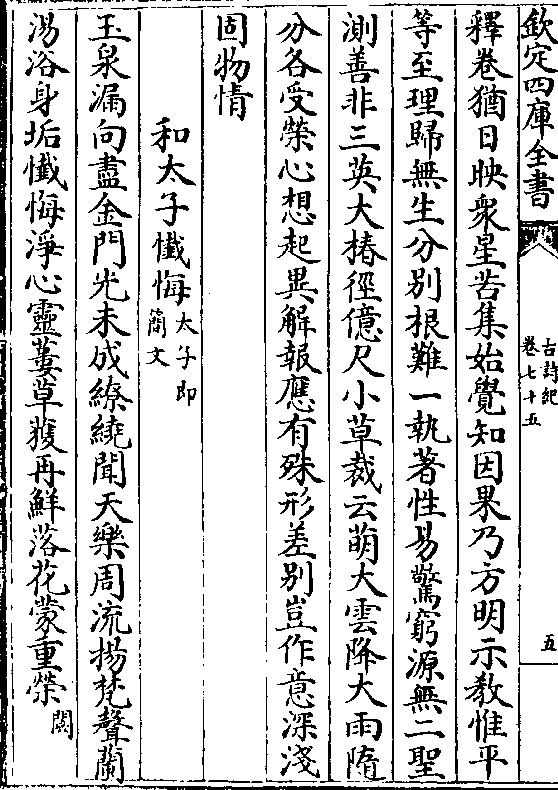 欽定四庫全書
古詩紀
卷七十五
五
釋卷猶日映衆星苦集始覺知因果乃方明示教惟平
等至理歸無生分别根難一執著性易驚窮源無二聖
測善非三英大椿徑億尺小草裁云萌大雲降大雨隨
分各受榮心想起異解報應有殊形差别豈作意深淺
固物情
和太子懺悔太子即簡文
玉泉漏向盡金門光未成繚繞聞天樂周流揚梵聲蘭
湯浴身垢懺悔淨心靈萎草獲再鮮落花蒙重榮闕